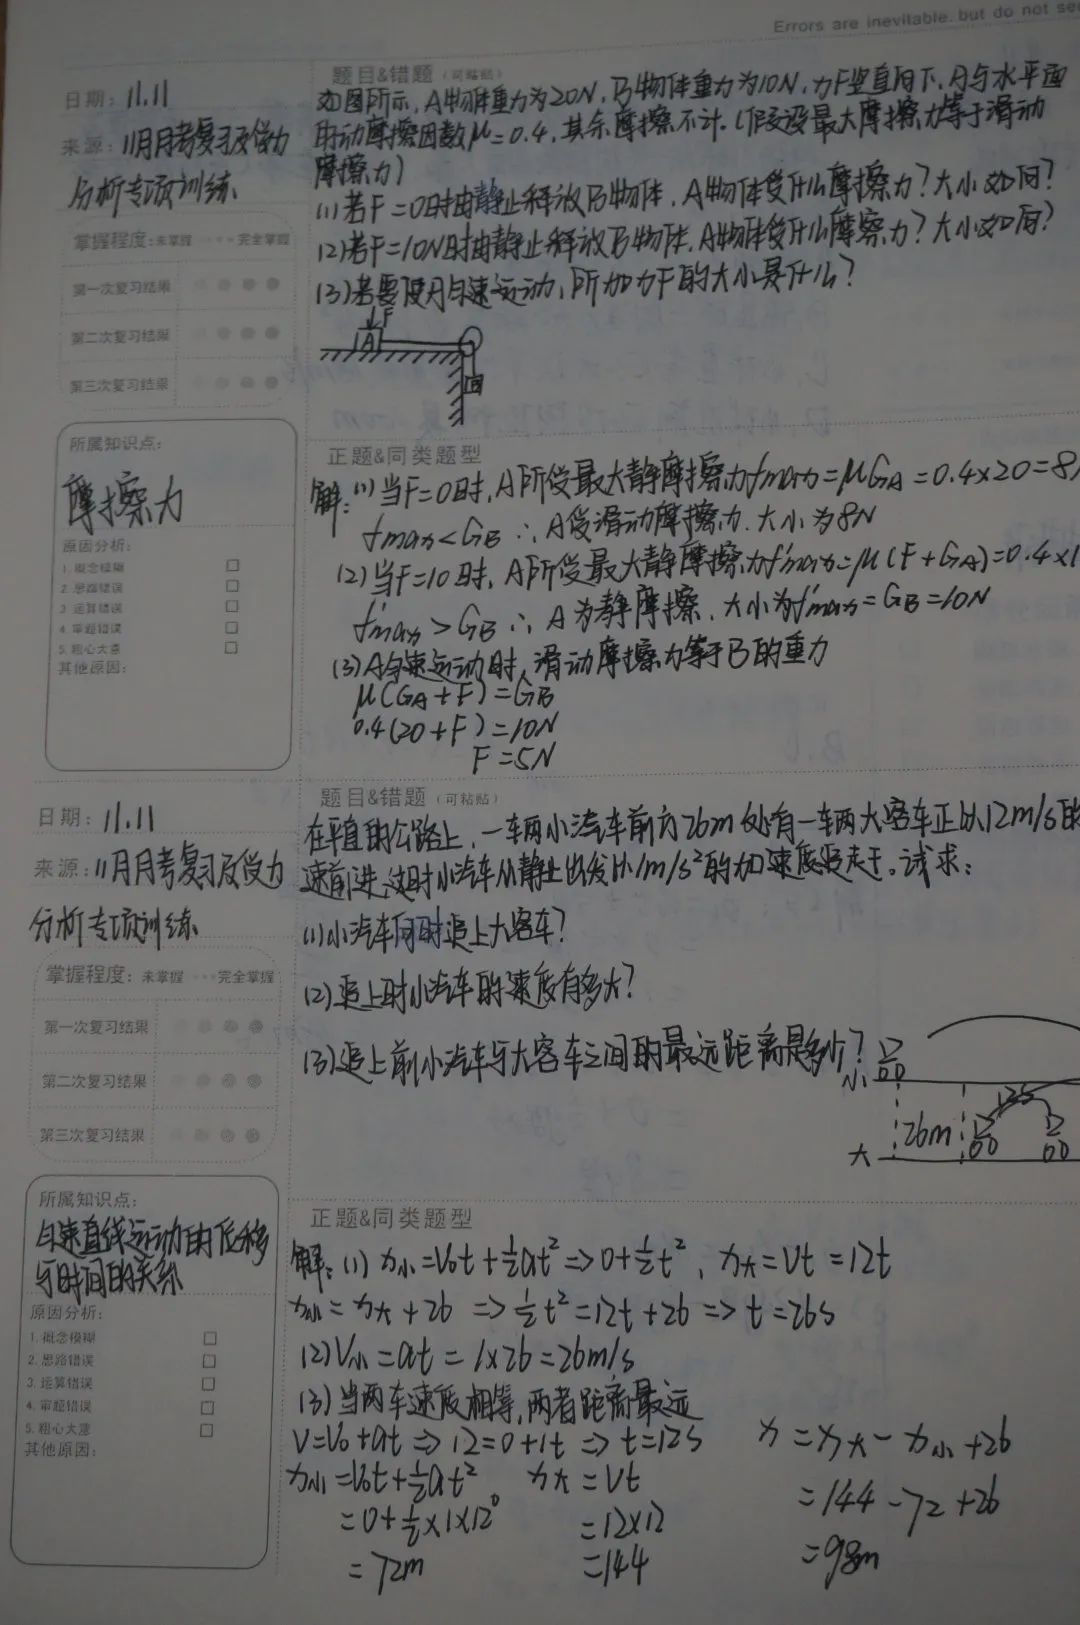 Errors are inevitable. but do not
日期: 11.11
来源: 11月月考复习及受力
分析专项训练
掌握程度: 未掌握 完全掌握
第一次复习结果
第二次复习结果
第三次复习结果
题目&错题 (可粘贴)
如图所示, A物体重力为20N, B物体重力为10N, 力F竖直向下, A与水平面
的动摩擦因数μ=0.4, 其余摩擦不计. (假设最大摩擦力等于滑动
摩擦力)
(1)若F=0时由静止释放B物体, A物体受什么摩擦力? 大小如何?
(2)若F=10N时由静止释放B物体, A物体受什么摩擦力? 大小如何?
(3)若要使A匀速运动, 所加力F的大小是什么?
F
A
所属知识点:
摩擦力
原因分析:
1. 概念模糊
2. 思路错误
3. 运算错误
4. 审题错误
5. 粗心大意
其他原因:
正题&同类题型
解: (1) 当F=0时, A所受最大静摩擦力fmax=μGA=0.4×20=8N
fmax<GB ∴ A受滑动摩擦力. 大小为8N
(2)当F=10时, A所受最大静摩擦力f'max=μ(F+GA)=0.4×
f'max>GB ∴ A为静摩擦. 大小为f'max=GB=10N
(3)A匀速运动时, 滑动摩擦力等于B的重力
μ(GA+F)=GB
0.4(20+F)=10N
F=5N
日期: 11.11
来源: 11月月考复习及受力
分析专项训练
掌握程度: 未掌握 完全掌握
第一次复习结果
第二次复习结果
第三次复习结果
题目&错题 (可粘贴)
在平直的公路上, 一车两小汽车前方26m处有一车两大客车正以12m/s的
速前进, 这时小汽车从静止出发以1m/s²的加速度追赶. 试求:
(1)小汽车何时追上大客车?
(2)追上时小汽车的速度有多大?
(3)追上前小汽车与大客车之间的最远距离是多少?
小
12s
26m
大
所属知识点:
匀速直线运动的位移
与时间的关系
原因分析:
1. 概念模糊
2. 思路错误
3. 运算错误
4. 审题错误
5. 粗心大意
其他原因:
正题&同类题型
解: (1) x小=V0t+½at² ⇒ 0+½t², x大=Vt=12t
x小=x大+26 ⇒ ½t²=12t+26 ⇒ t=26s
(2)V小=at=1×26=26m/s
(3)当两车速度相等, 两者距离最远
V=V0+at ⇒ 12=0+1t ⇒ t=12s
x小=V0t+½at² x大=Vt x=x大-x小+26
=0+½×1×12² =12×12 =144-72+26
=72m =144 =98m